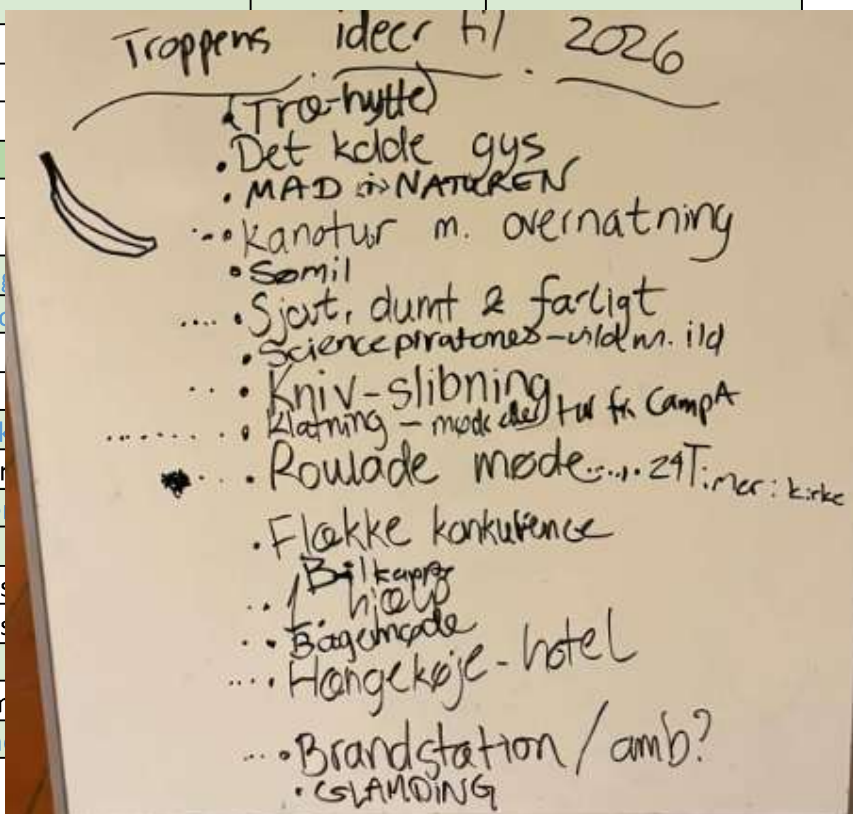 Troppens ideer til 2026
(Træ-hytte)
• Det kolde gys
• MAD i NATUREN
• Kanotur m. overnatning
• Sømil
• Sjovt, dumt & farligt
• Sciencepiraterne - vild m. ild
• Kniv-slibning
• Klatring - møde eller tur fr. CampA
• Roulade møde..... 24Timer i kirke
• Flække konkurence
Bilkapp
• 1. hjælp
• Bagemøde
• Hængekøje-hotel
• Brandstation / amb?
• GLAMPING